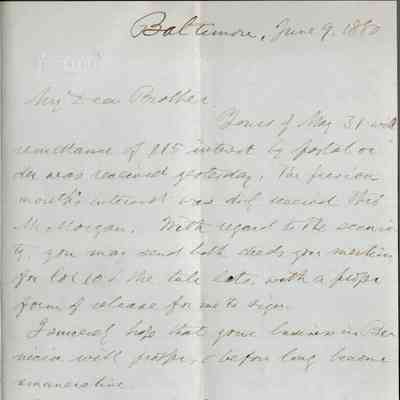 Baltimore, June 9, 1880
My Dear Brother
Yours of May 31 with
remittance of $15 interest by postal or
der was received yesterday. The previous
month's interest was duly received thro
Mr Morgan. With regard to the securi
ty, you may send both deeds you mention
for lot 10 & the tule lots, with a proper
form of release for me to sign.
I sincerely hope that your business in Be
nicia will prosper, & before long become
remunerative.